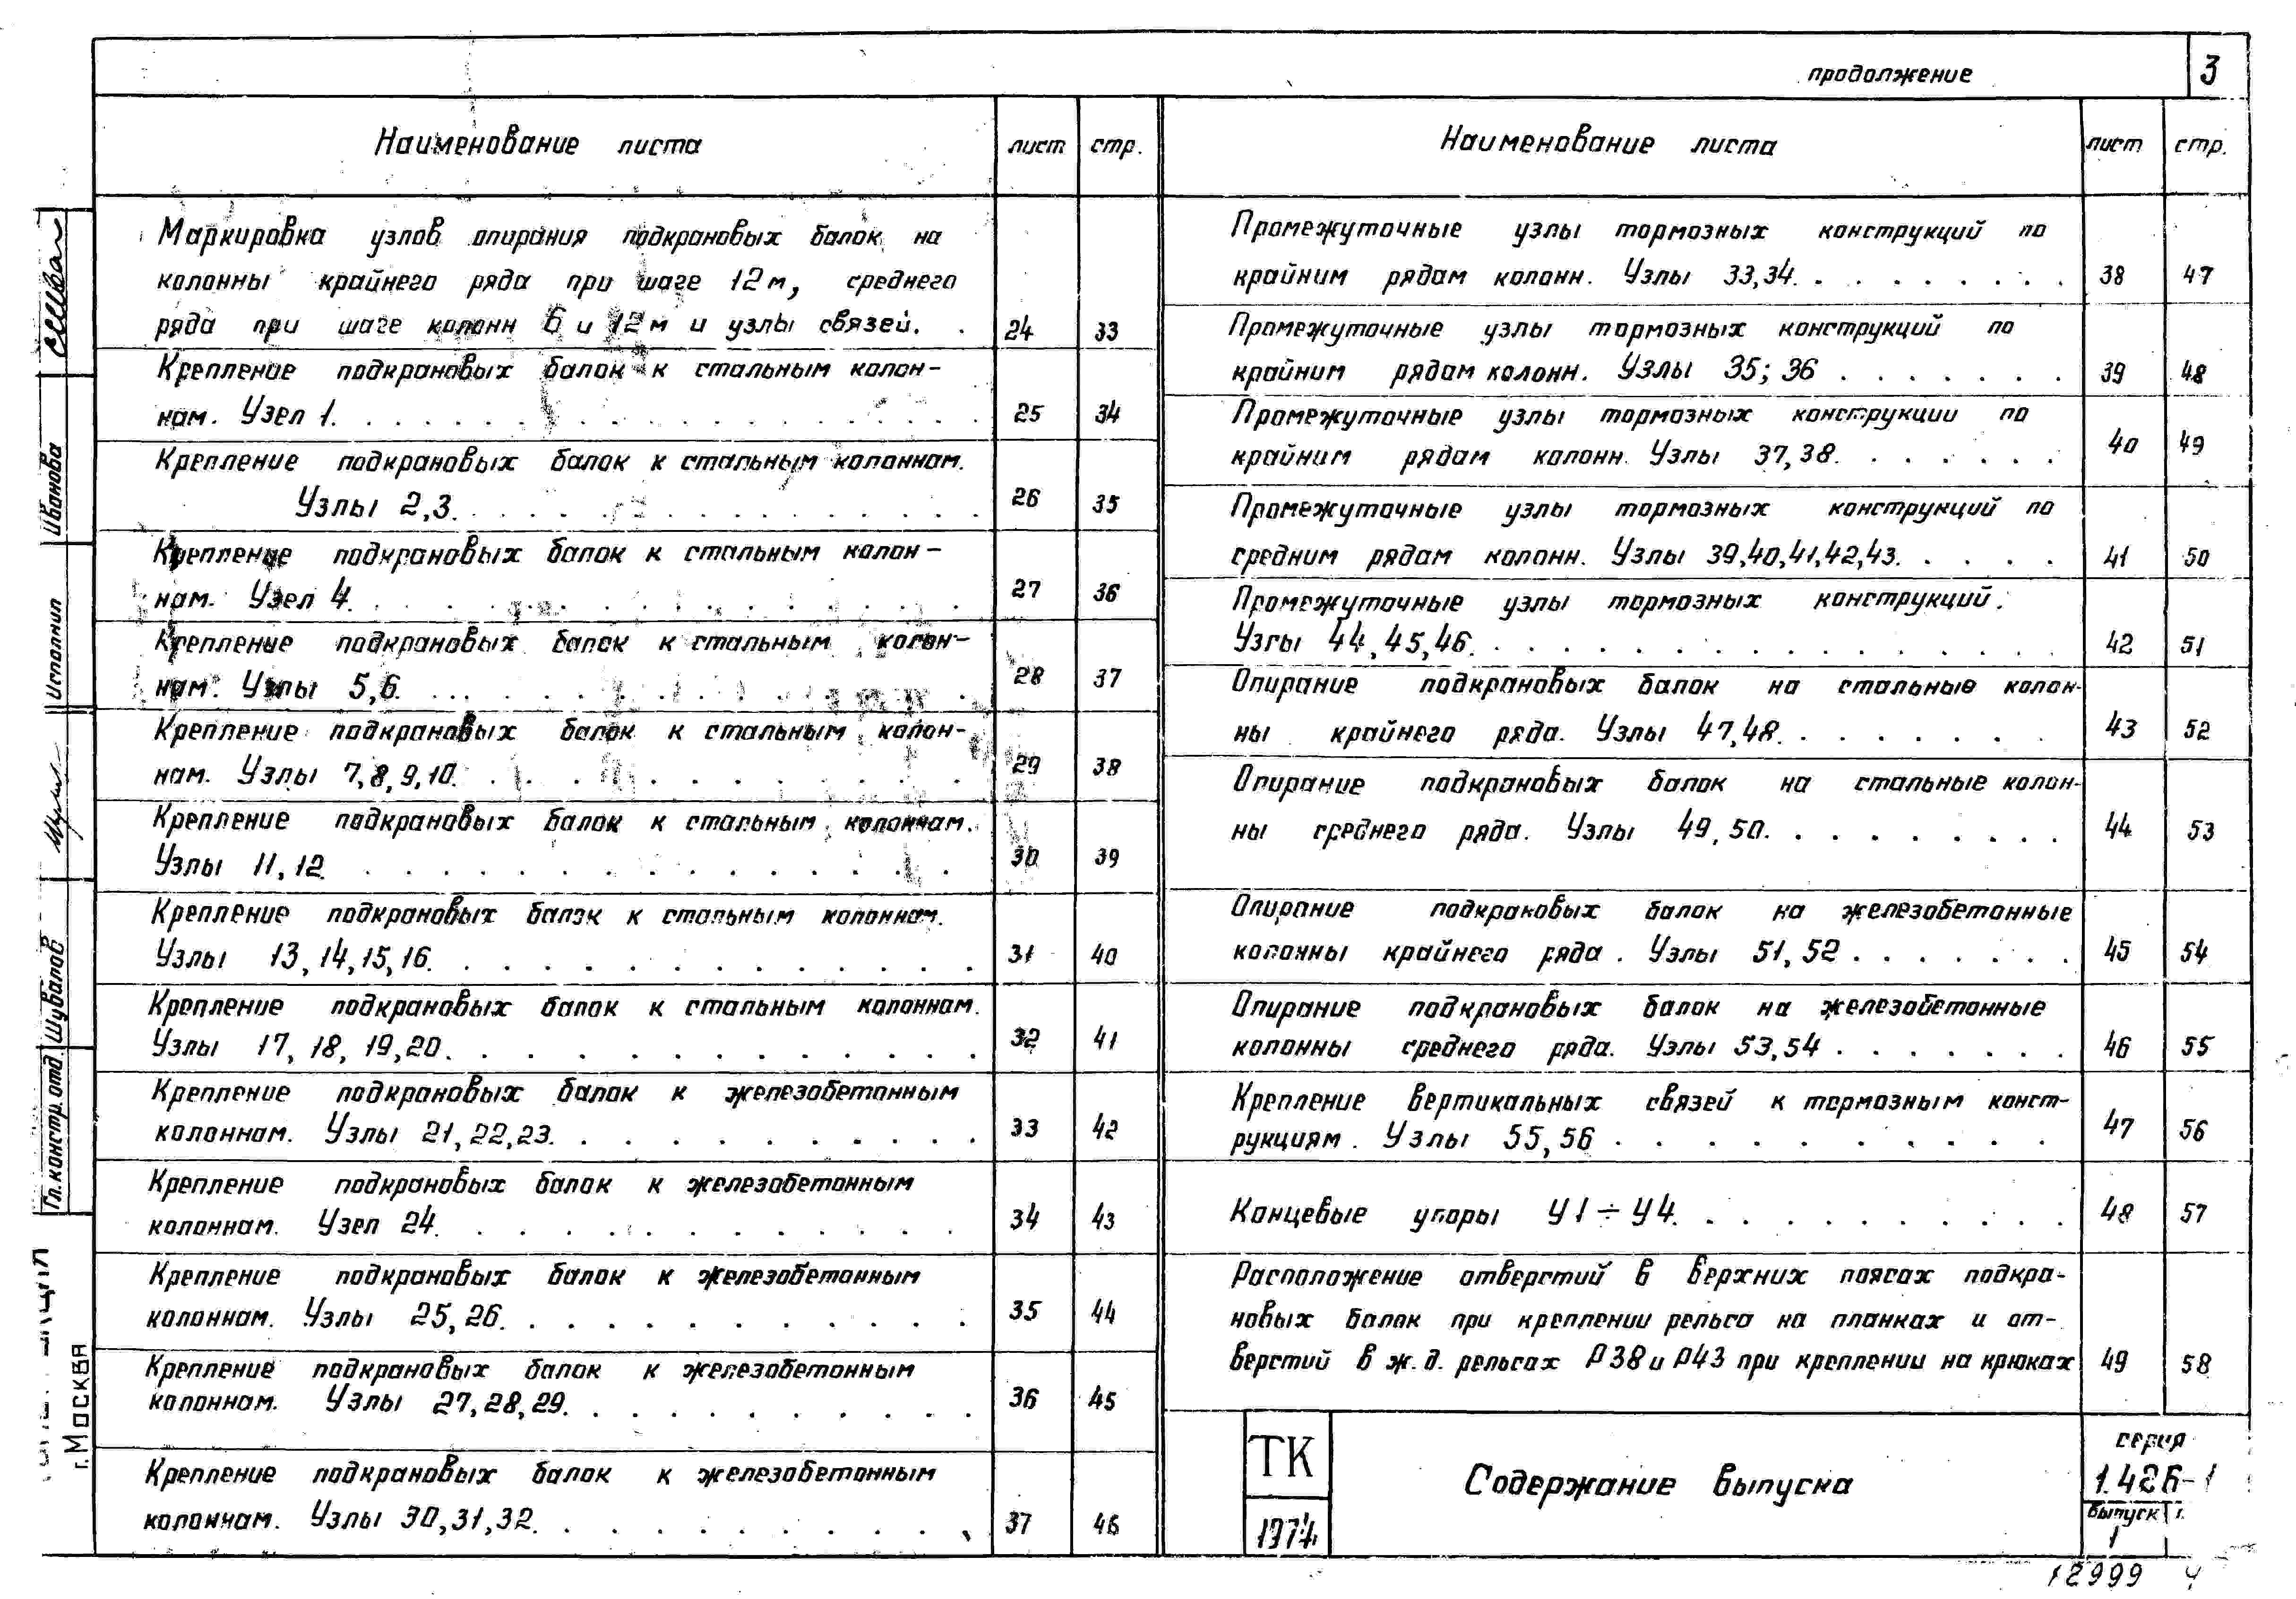 продолжение 3
Наименование листа лист стр.
Маркировка узлов опирания подкрановых балок на
колонны крайнего ряда при шаге 12м, среднего
ряда при шаге колонн 6 и 12м и узлы связей. . 24 33
Крепление подкрановых балок к стальным колон-
нам. Узел 1. 25 34
Крепление подкрановых балок к стальным колоннам.
Узлы 2,3. 26 35
Крепление подкрановых балок к стальным колон-
нам. Узел 4. 27 36
Крепление подкрановых балок к стальным колон-
нам. Узлы 5,6. 28 37
Крепление подкрановых балок к стальным колон-
нам. Узлы 7,8,9,10. 29 38
Крепление подкрановых балок к стальным колоннам.
Узлы 11,12. 30 39
Крепление подкрановых балок к стальным колоннам.
Узлы 13,14,15,16. 31 40
Крепление подкрановых балок к стальным колоннам.
Узлы 17, 18, 19,20. 32 41
Крепление подкрановых балок к железобетонным
колоннам. Узлы 21,22,23. 33 42
Крепление подкрановых балок к железобетонным
колоннам. Узел 24. 34 43
Крепление подкрановых балок к железобетонным
колоннам. Узлы 25,26. 35 44
Крепление подкрановых балок к железобетонным
колоннам. Узлы 27,28,29. 36 45
Крепление подкрановых балок к железобетонным
колоннам. Узлы 30,31,32. 37 46
Наименование листа лист стр.
Промежуточные узлы тормозных конструкций по
крайним рядам колонн. Узлы 33,34. 38 47
Промежуточные узлы тормозных конструкций по
крайним рядам колонн. Узлы 35; 36 39 48
Промежуточные узлы тормозных конструкции по
крайним рядам колонн. Узлы 37,38. 40 49
Промежуточные узлы тормозных конструкций по
средним рядам колонн. Узлы 39,40,41,42,43. 41 50
Промежуточные узлы тормозных конструкций.
Узлы 44,45,46. 42 51
Опирание подкрановых балок на стальные колон-
ны крайнего ряда. Узлы 47,48. 43 52
Опирание подкрановых балок на стальные колон-
ны среднего ряда. Узлы 49,50. 44 53
Опирание подкрановых балок на железобетонные
колонны крайнего ряда. Узлы 51,52 45 54
Опирание подкрановых балок на железобетонные
колонны среднего ряда. Узлы 53,54 46 55
Крепление вертикальных связей к тормозным конст-
рукциям. Узлы 55,56 47 56
Концевые упоры У1÷У4. 48 57
Расположение отверстий в верхних поясах подкра-
новых балок при креплении рельса на планках и от-
верстий в ж.д. рельсах Р38 и Р43 при креплении на крюках 49 58
ТК
1974
Содержание выпуска
серия
1.426-1
выпуск
1
12999 4
Иванова
Исполнил
Шувалов
Гл. констр. отд.
г. Москва